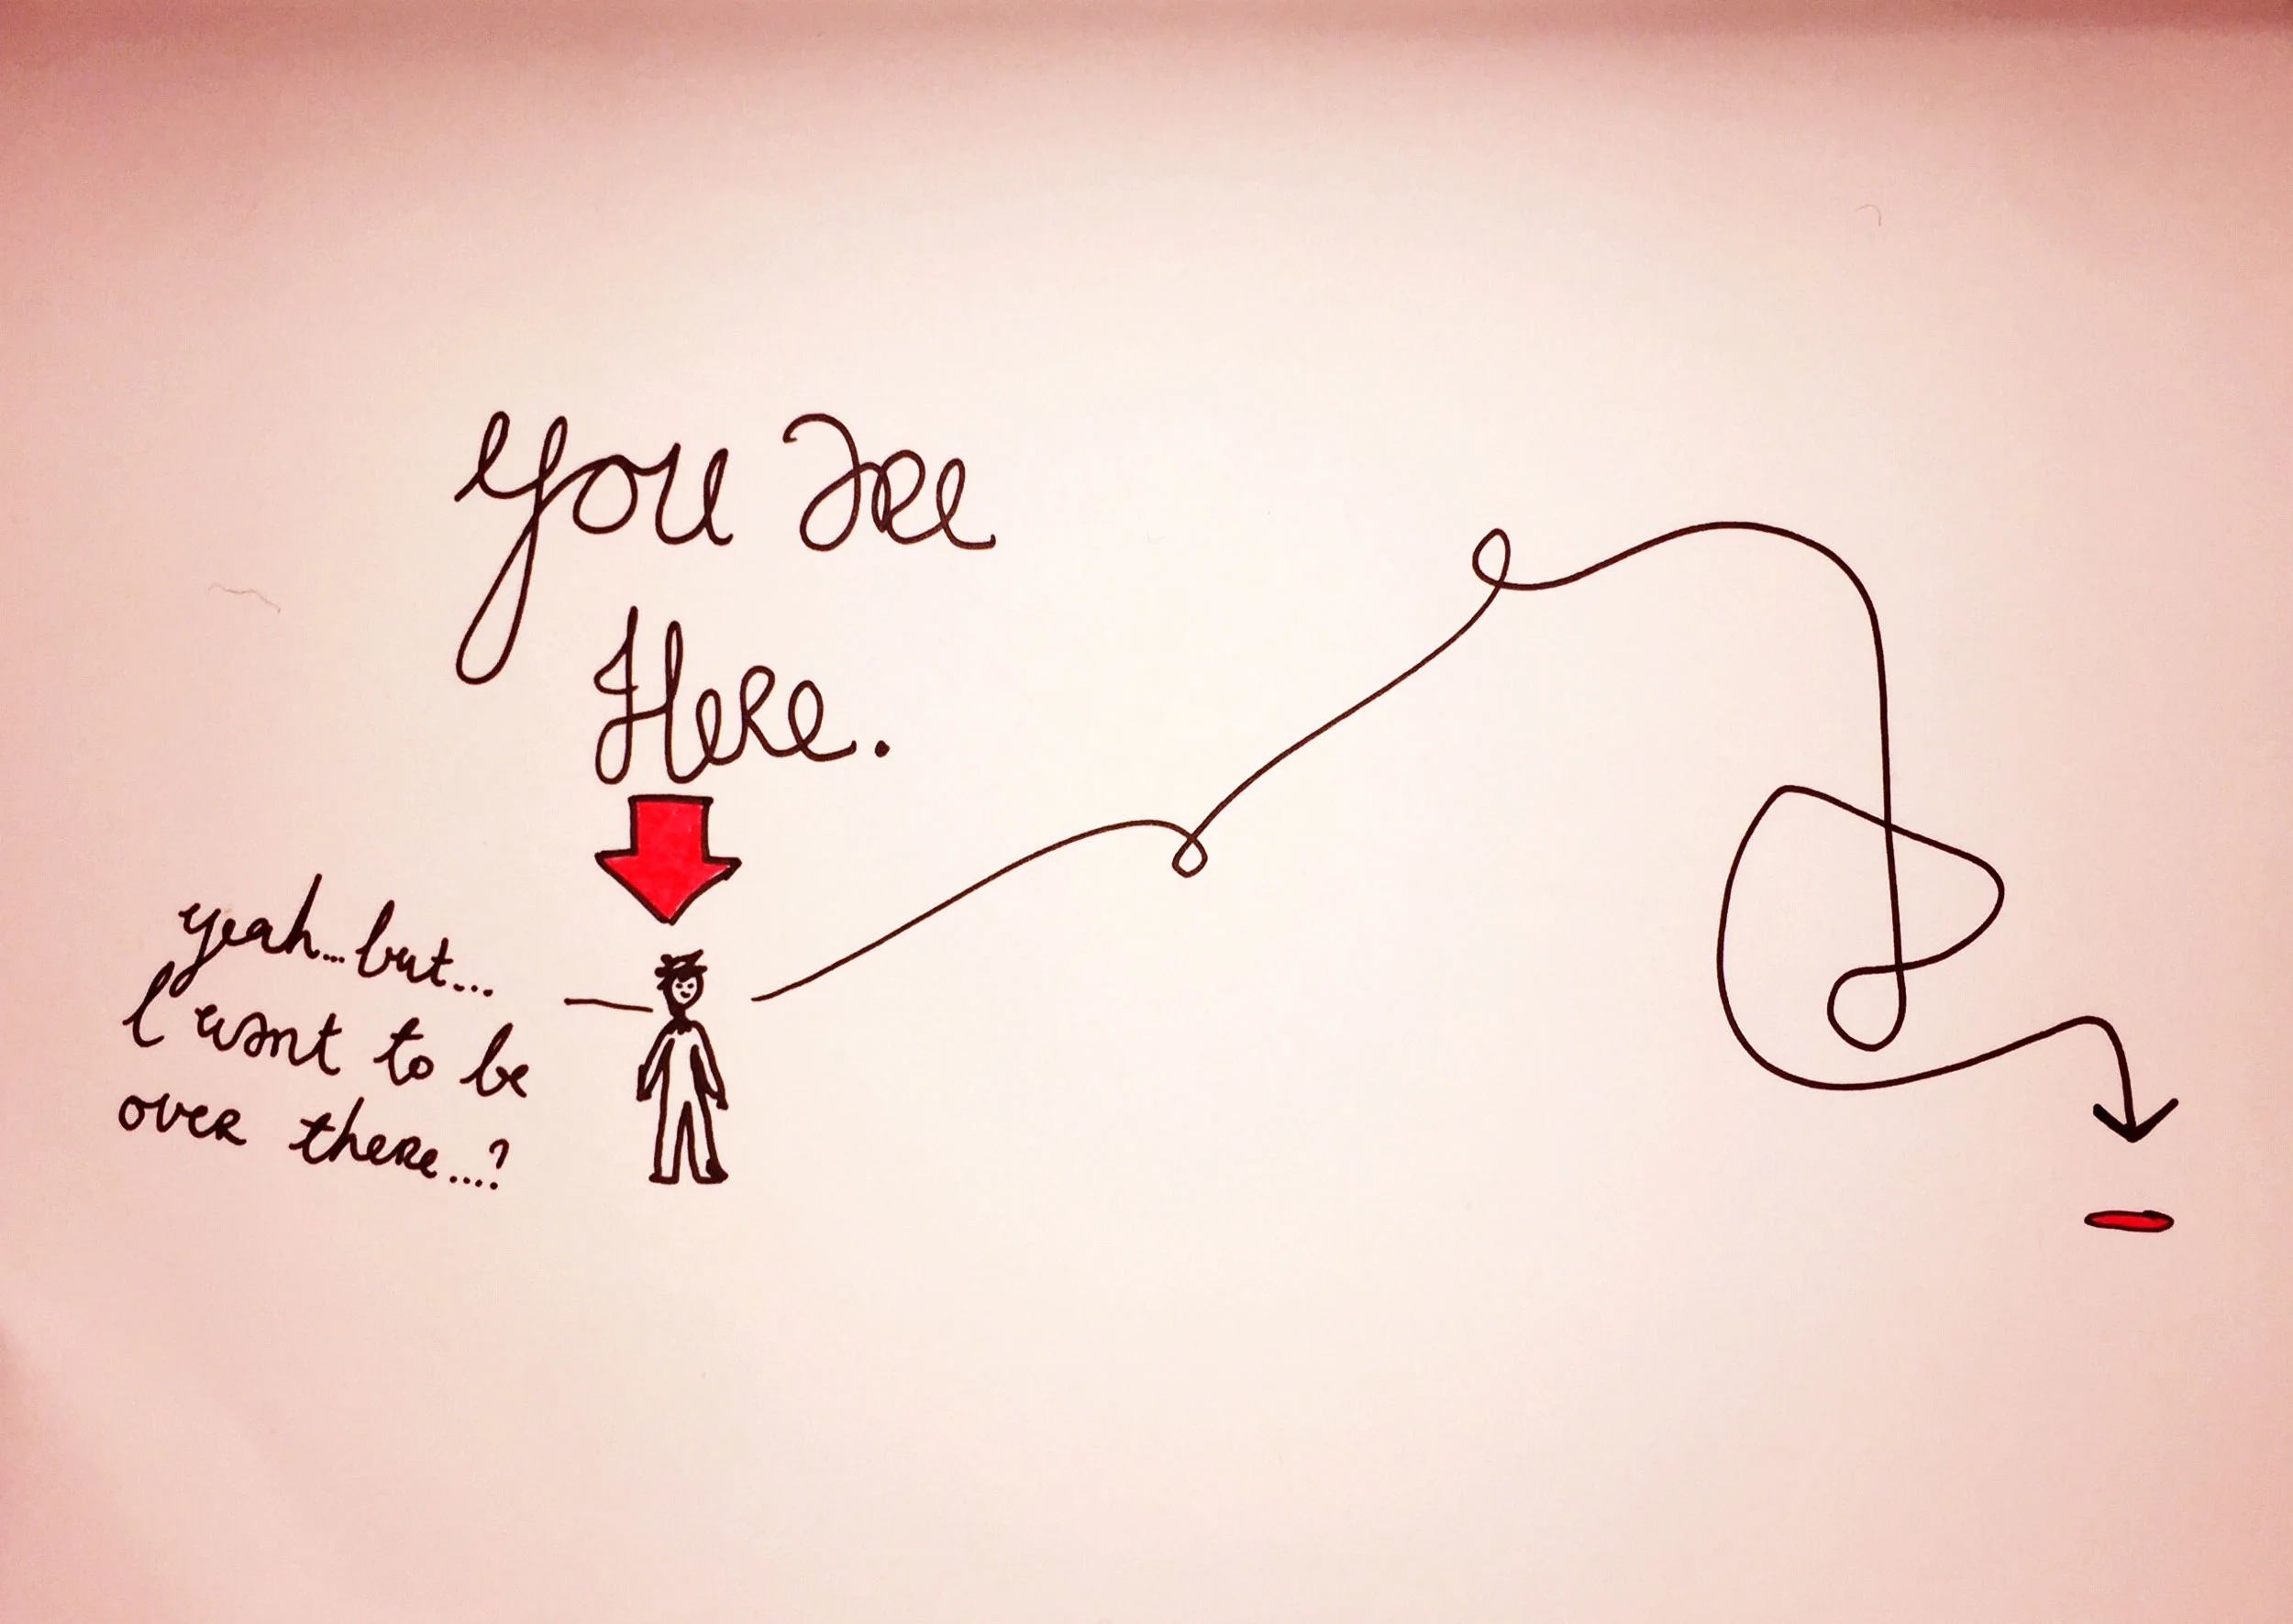 You are
Here.
yeah...but...
I want to be
over there....?